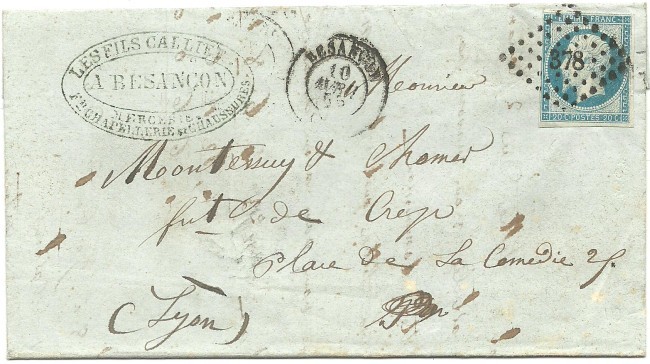 LES FILS CALLIER
A BESANÇON
MERCERIE
CHAPELLERIE ET CHAUSSURES
BESANÇON
10
AVRIL
EMPIRE FRANC
378
20 C POSTES 20 C
Monsieur
Montessuy & Chomer
fnt de Crep
Place de La Comedie 25
(Lyon)